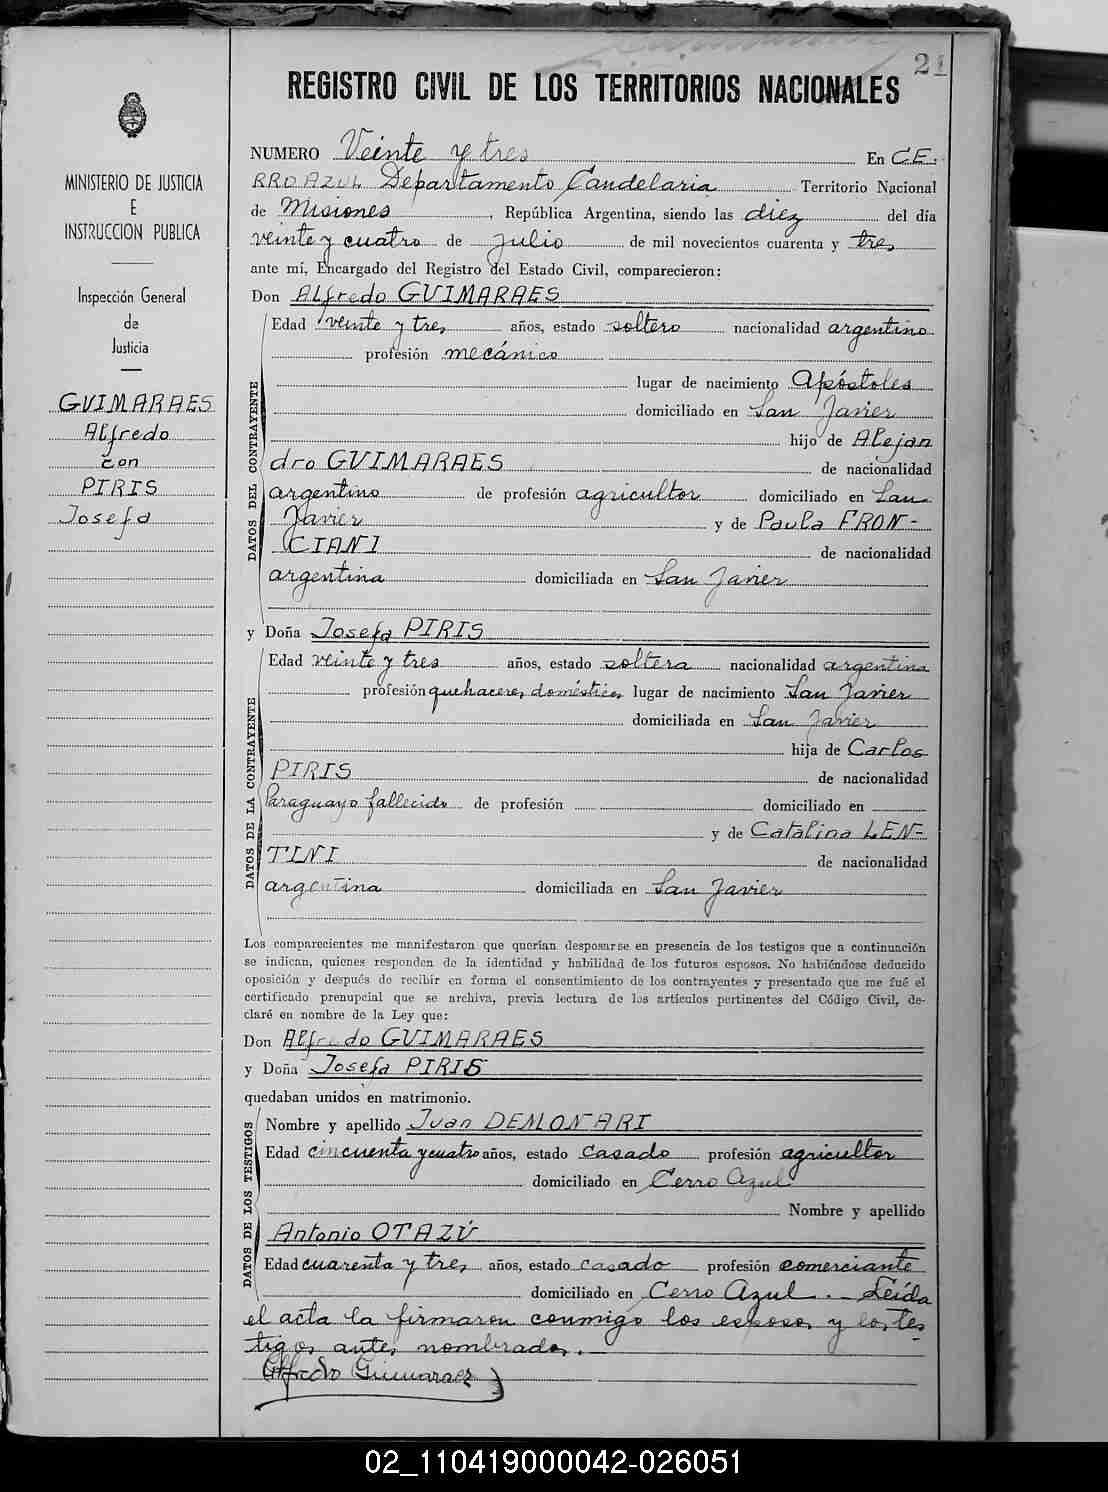 21
REGISTRO CIVIL DE LOS TERRITORIOS NACIONALES
MINISTERIO DE JUSTICIA
E
INSTRUCCION PUBLICA
Inspección General
de
Justicia
GUIMARAES
Alfredo
con
PIRIS
Josefa
NUMERO Veinte y tres En CE-
RRO AZUL Departamento Candelaria Territorio Nacional
de Misiones, República Argentina, siendo las diez del día
veinte y cuatro de Julio de mil novecientos cuarenta y tres
ante mí, Encargado del Registro del Estado Civil, comparecieron:
Don Alfredo GUIMARAES
DATOS DEL CONTRAYENTE
Edad veinte y tres años, estado soltero nacionalidad argentino
profesión mecánico
lugar de nacimiento Apóstoles
domiciliado en San Javier
hijo de Alejan
dro GUIMARAES de nacionalidad
argentino de profesión agricultor domiciliado en San
Javier y de Paula FRON-
CIANI de nacionalidad
argentina domiciliada en San Javier
y Doña Josefa PIRIS
DATOS DE LA CONTRAYENTE
Edad veinte y tres años, estado soltera nacionalidad argentina
profesión quehaceres domésticos lugar de nacimiento San Javier
domiciliada en San Javier
hija de Carlos
PIRIS de nacionalidad
Paraguayo fallecido de profesión domiciliado en
y de Catalina LEN-
TINI de nacionalidad
argentina domiciliada en San Javier
Los comparecientes me manifestaron que querían desposarse en presencia de los testigos que a continuación
se indican, quienes responden de la identidad y habilidad de los futuros esposos. No habiéndose deducido
oposición y después de recibir en forma el consentimiento de los contrayentes y presentado que me fué el
certificado prenupcial que se archiva, previa lectura de los artículos pertinentes del Código Civil, de-
claré en nombre de la Ley que:
Don Alfredo GUIMARAES
y Doña Josefa PIRIS
quedaban unidos en matrimonio.
DATOS DE LOS TESTIGOS
Nombre y apellido Juan DEMONARI
Edad cincuenta y cuatro años, estado casado profesión agricultor
domiciliado en Cerro Azul
Nombre y apellido
Antonio OTAZÚ
Edad cuarenta y tres años, estado casado profesión comerciante
domiciliado en Cerro Azul.- Leída
el acta la firmaron conmigo los esposos y los tes-
tigos antes nombrados.-
Alfredo Guimaraez
02_110419000042-026051